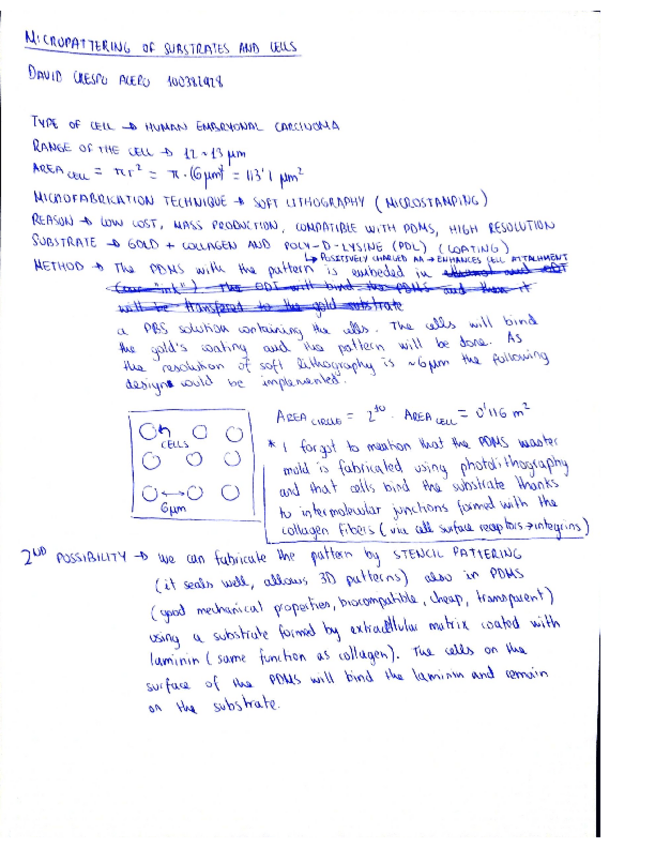 MICROPATTERING OF SUBSTRATES AND CELLS
DAVID CRESPO ACERO 100382928
TYPE OF CELL → HUMAN EMBRYONAL CARCINOMA
RANGE OF THE CELL → 12-13 μm
AREA CELL = πr² = π·(6μm)² = 113'1 μm²
MICROFABRICATION TECHNIQUE → SOFT LITHOGRAPHY (MICROSTAMPING)
REASON → LOW COST, MASS PRODUCTION, COMPATIBLE WITH PDMS, HIGH RESOLUTION
SUBSTRATE → GOLD + COLLAGEN AND POLY-D-LYSINE (PDL) (COATING)
↳ POSITIVELY CHARGED AA → ENHANCES CELL ATTACHMENT
METHOD → The PDMS with the pattern is embeded in
(our "ink") The ODT will bind the PDMS and then it
will be transfered to the gold substrate
a PBS solution containing the cells. The cells will bind
the gold's coating and the pattern will be done. As
the resolution of soft lithography is ~6μm the following
designs would be implemented.
AREA CIRCLE = 2^10 · AREA CELL = 0'116 m²
CELLS
6μm
* I forgot to mention that the PDMS master
mold is fabricated using photolithography
and that cells bind the substrate thanks
to intermolecular junctions formed with the
collagen fibers (via cell surface receptors → integrins)
2ND POSSIBILITY → We can fabricate the pattern by STENCIL PATTERING
(it seals well, allows 3D patterns) also in PDMS
(good mechanical properties, biocompatible, cheap, transparent)
using a substrate formed by extracellular matrix coated with
laminin (same function as collagen). The cells on the
surface of the PDMS will bind the laminin and remain
on the substrate.